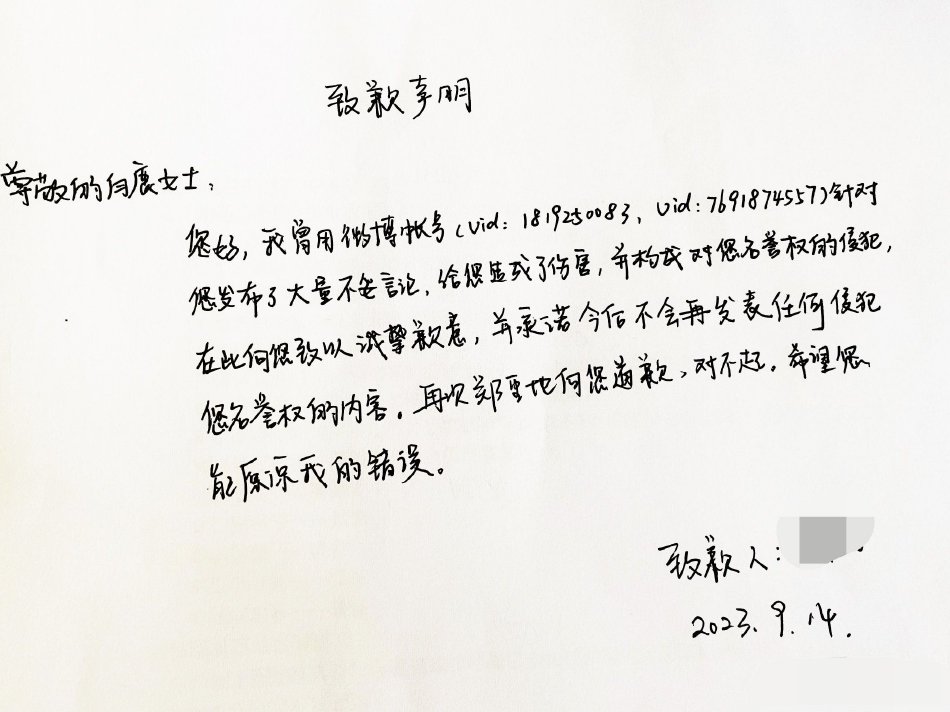 致歉声明
尊敬的白鹿女士：
您好，我曾用微博帐号（uid：1819250083，uid：7691874557）针对
您发布了大量不妥言论，给您造成了伤害，并构成对您名誉权的侵犯，
在此向您致以诚挚歉意，并承诺今后不会再发表任何侵犯
您名誉权的内容。再次郑重地向您道歉，对不起。希望您
能原谅我的错误。
致歉人：
2023.9.14.